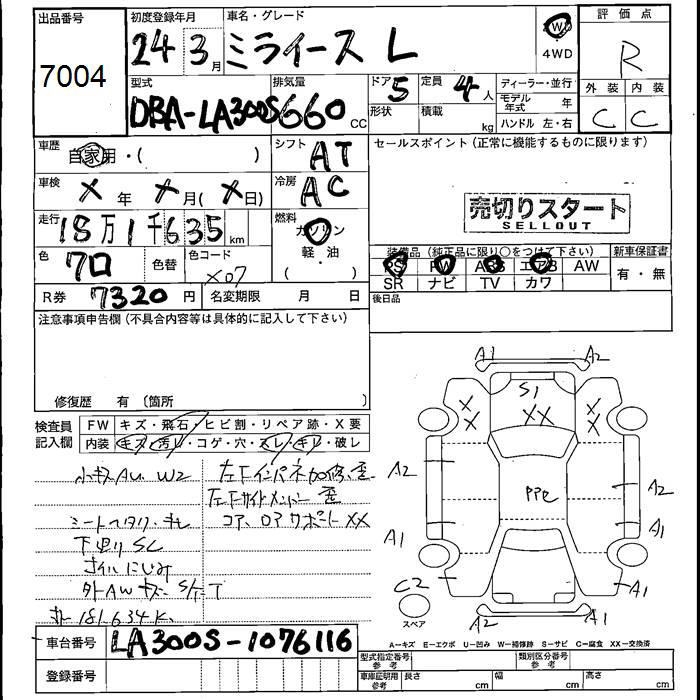 出品番号
7004
初度登録年月
24 3月
車名・グレード
ミライース L
2WD
4WD
評価点
R
外装 内装
C C
型式
DBA-LA300S
排気量
660 cc
ドア 5
形状
定員 4人
積載 kg
ディーラー・並行
モデル年式 年
ハンドル 左・右
車歴
自家用・( )
シフト AT
セールスポイント(正常に機能するものに限ります)
車検
× 年 × 月( × 日)
冷房 AC
売切りスタート
SELLOUT
走行
18万1千635km
燃料
ガソリン
軽・油
( )
色
クロ
色替
色コード
X07
装備品(純正品に限り○をつけて下さい)
PS PW ABS エアB AW
SR ナビ TV カワ
新車保証書
有・無
R券 7320円
名変期限 月 日
後日品
注意事項申告欄(不具合内容等は具体的に記入して下さい)
修復歴 有 (箇所 )
検査員記入欄
FW キズ・飛石・ヒビ割・リペア跡・X要
内装 キズ・汚レ・コゲ・穴・スレ・キレ・破レ
小キズ AU W2
シートヘタリ・キレ
下廻り SC
オイルにじみ
外AWキズ S/T-T
181.634K
左Fインパネ加修、歪
左Fサイドメンバー歪
コア、ロアサポート XX
A1 A2
S1
X X XX X X
A2 A2
PPC
A1 A1
C2
A1 A1
A2 A2
スペア
車台番号 LA300S-1076116
登録番号
A=キズ E=エクボ U=凹み W=補修跡 S=サビ C=腐食 XX=交換済
型式指定番号 参考
類別区分番号 参考
車庫証明用 参考
長さ cm 幅 cm 高さ cm